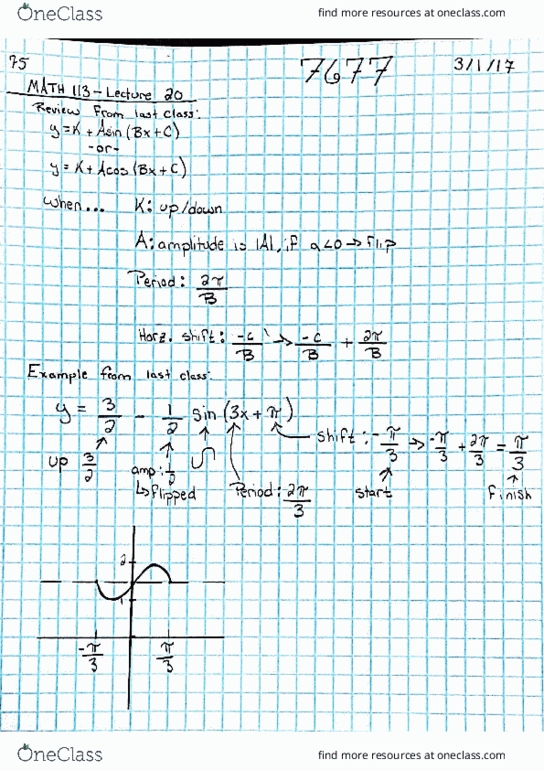 OneClass
find more resources at oneclass.com
75
7677
3/1/17
MATH 113 - Lecture 20
Review from last class:
y = K + Asin (Bx + C)
-or-
y = K + Acos (Bx + C)
When... K: up/down
A: amplitude is |A|, if a<0 → flip
Period: 2π/B
Horz. shift: -C/B → -C/B + 2π/B
Example from last class:
y = 3/2 - 1/2 sin (3x + π)
shift: -π/3 → -π/3 + 2π/3 = π/3
up 3/2
amp: 1/2
↳ flipped
Period: 2π/3
start
finish
2
1
-π/3
π/3
OneClass
find more resources at oneclass.com